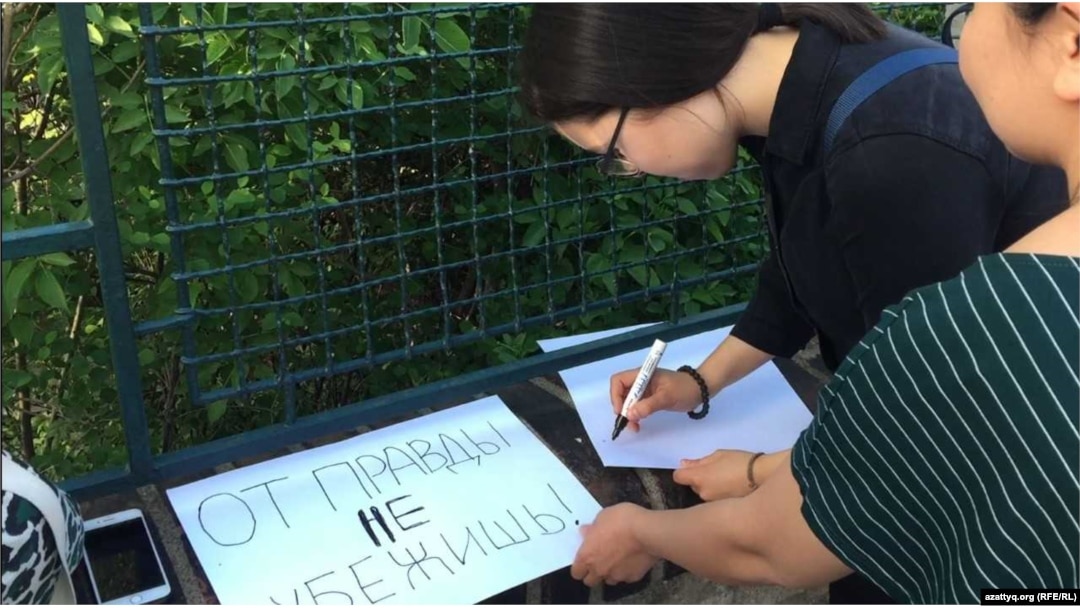 ОТ ПРАВДЫ
НЕ
УБЕЖИШЬ!
azattyq.org (RFE/RL)